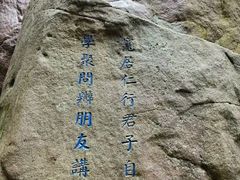 寬居仁行君子自
學聚問辨朋友講